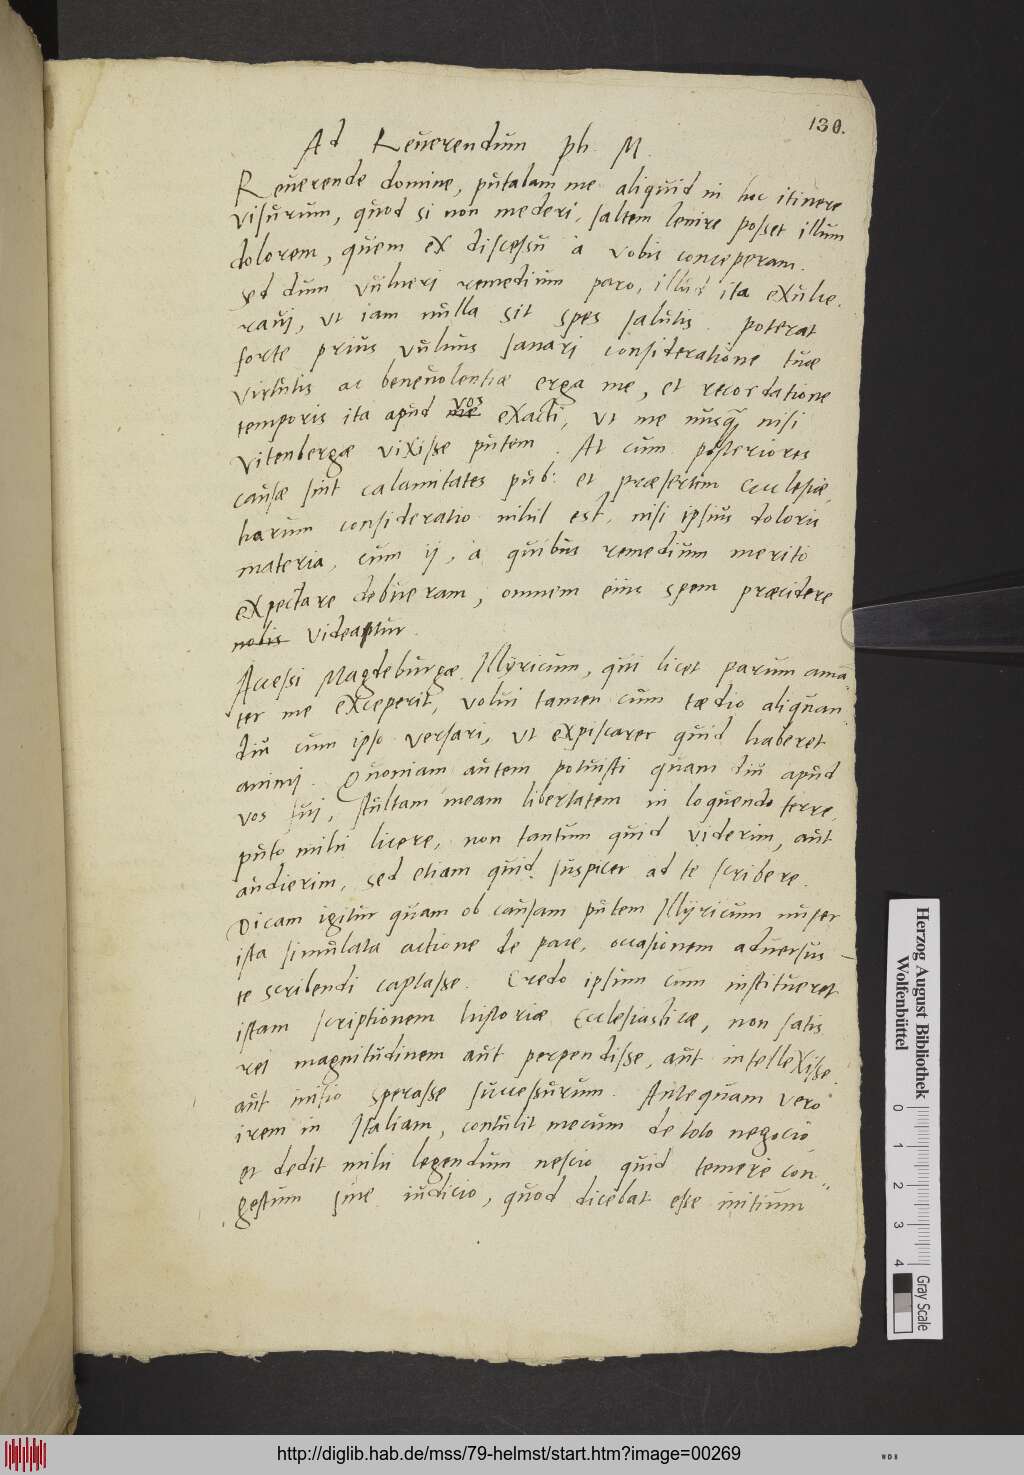 130.
Ad Reverendum ph. M.
Reverende domine, putabam me aliquid in hoc itinere
visurum, quod si non mederi, saltem lenire posset illum
dolorem, quem ex discessu a vobis conceperam.
sed dum vulneri remedium paro, illud ita exulce-
ravi, ut iam nulla sit spes salutis. poterat
forte prius vulnus sanari consideratione tuæ
virtutis ac benevolentiæ erga me, et recordatione
temporis ita apud me vos exacti, ut me nusq̃ nisi
Vitenbergæ vixisse putem. At cum posteriores
causæ sint calamitates pub: et præsertim Ecclesiæ,
harum consideratio nihil est, nisi ipsius doloris
materia, cum ij, a quibus remedium merito
expectare debueram, omnem eius spem præcidere
nobis videantur.
Accessi Magdeburgæ Illyricum, qui licet parum aman-
ter me exceperit, volui tamen cum tædio aliquan
diu cum ipso versari, ut expiscarer quid haberet
animi. Quoniam autem potuisti quam diu apud
vos fui, stultam meam libertatem in loquendo ferre,
puto mihi licere, non tantum quid viderim, aut
audierim, sed etiam quid suspicer ad te scribere.
Dicam igitur quam ob causam putem Illyricum nuper
ista simulata actione de pace, occasionem adversus
te scribendi captasse. Credo ipsum cum institueret
istam scriptionem historiæ Ecclesiasticæ, non satis
rei magnitudinem aut perpendisse, aut intellexisse
aut initio sperasse successurum. Antequam vero
irem in Italiam, contulit mecum de toto negocio,
et dedit mihi legendum nescio quid temere con-
gestum sine iudicio, quod dicebat esse initium
Herzog August Bibliothek
Wolfenbüttel
0 1 2 3 4
Gray Scale
http://diglib.hab.de/mss/79-helmst/start.htm?image=00269
WDB